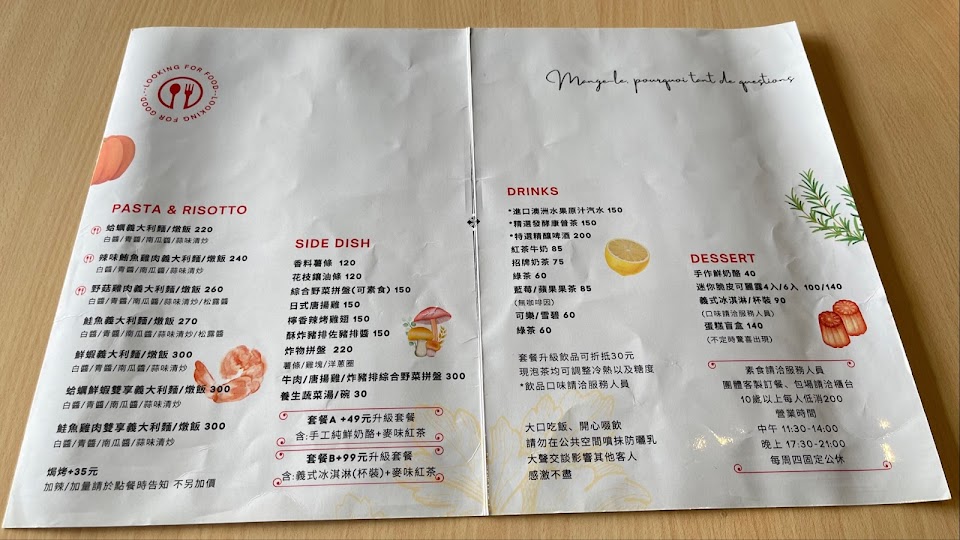 LOOKING FOR FOOD--LOOKING FOR GOOD--
PASTA & RISOTTO
蛤蠣義大利麵/燉飯 220
白醬/青醬/南瓜醬/蒜味清炒
辣味鮪魚雞肉義大利麵/燉飯 240
白醬/青醬/南瓜醬/蒜味清炒
野菇雞肉義大利麵/燉飯 260
白醬/青醬/南瓜醬/蒜味清炒/松露醬
鮭魚義大利麵/燉飯 270
白醬/青醬/南瓜醬/蒜味清炒/松露醬
鮮蝦義大利麵/燉飯 300
白醬/青醬/南瓜醬/蒜味清炒
蛤蠣鮮蝦雙享義大利麵/燉飯 300
白醬/青醬/南瓜醬/蒜味清炒
鮭魚雞肉雙享義大利麵/燉飯 300
白醬/青醬/南瓜醬/蒜味清炒
焗烤+35元
加辣/加量請於點餐時告知 不另加價
SIDE DISH
香料薯條 120
花枝鑲油條 120
綜合野菜拼盤(可素食) 150
日式唐揚雞 150
檸香辣烤雞翅 150
酥炸豬排佐豬排醬 150
炸物拼盤 220
薯條/雞塊/洋蔥圈
牛肉/唐揚雞/炸豬排綜合野菜拼盤 300
養生蔬菜湯/碗 30
套餐A +49元升級套餐
含:手工純鮮奶酪+麥味紅茶
套餐B+99元升級套餐
含:義式冰淇淋(杯裝)+麥味紅茶
Mange le, pourquoi tant de questions
DRINKS
*進口澳洲水果原汁汽水 150
*精選發酵康普茶 150
*特選精釀啤酒 200
紅茶牛奶 85
招牌奶茶 75
綠茶 60
藍莓/蘋果果茶 85
(無咖啡因)
可樂/雪碧 60
綠茶 60
套餐升級飲品可折抵30元
現泡茶均可調整冷熱以及糖度
*飲品口味請洽服務人員
大口吃飯、開心啜飲
請勿在公共空間噴抹防曬乳
大聲交談影響其他客人
感激不盡
DESSERT
手作鮮奶酪 40
迷你脆皮可麗露4入/6入 100/140
義式冰淇淋/杯裝 90
(口味請洽服務人員)
蛋糕盲盒 140
(不定時驚喜出現)
素食請洽服務人員
團體客製訂餐、包場請洽櫃台
10歲以上每人低消200
營業時間
中午 11:30-14:00
晚上 17:30-21:00
每周四固定公休